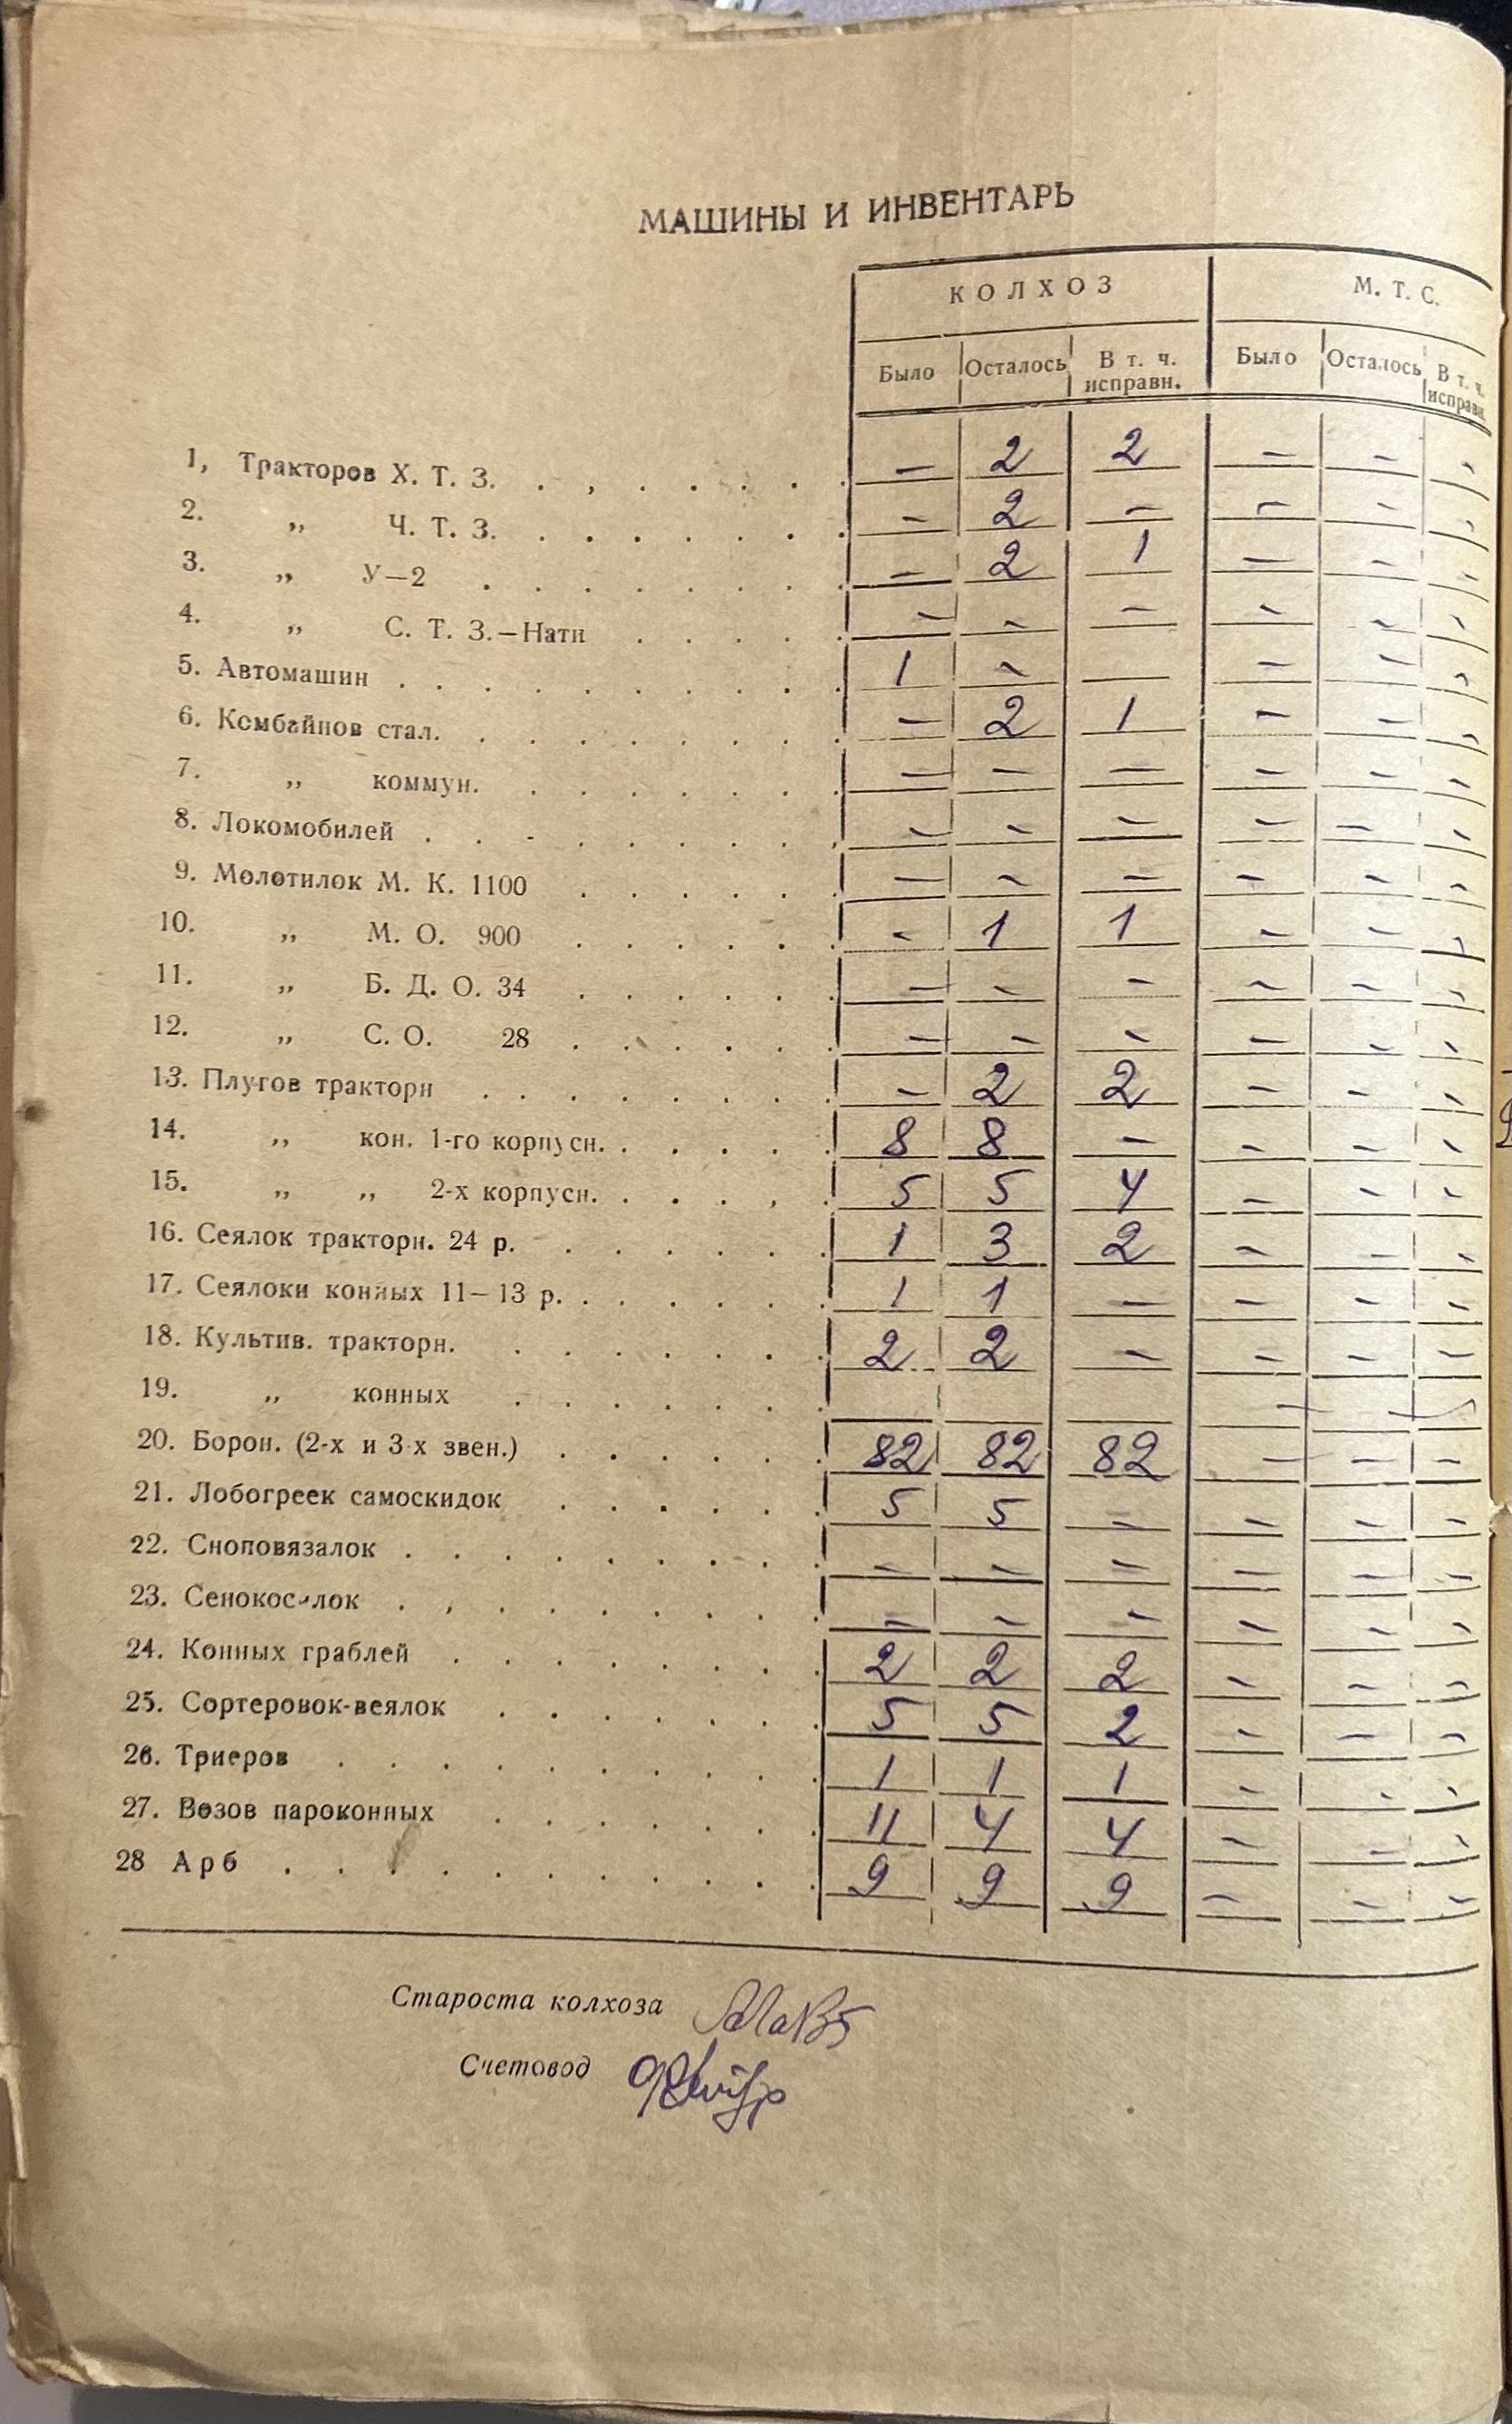 МАШИНЫ И ИНВЕНТАРЬ
КОЛХОЗ М. Т. С.
Было Осталось В т. ч. исправн. Было Осталось В т. ч. исправн.
1, Тракторов Х. Т. З. . , . . . . . – 2 2 – – –
2. „ Ч. Т. З. . . . . . . . – 2 – – – –
3. „ У—2 . . . . . . . – 2 1 – – –
4. „ С. Т. З.—Нати . . . . . – – – – – –
5. Автомашин . . . . . . . . . . . 1 – – – –
6. Комбайнов стал. . . . . . . . . – 2 1 – – –
7. „ коммун. . . . . . . . – – – – – –
8. Локомобилей . . - . . . . . , – – – – – –
9. Молотилок М. К. 1100 . . . . . . – – – – – –
10. „ М. О. 900 . . . . . . - 1 1 – – –
11. „ Б. Д. О. 34 . . . . . . – – – – – –
12. „ С. О. 28 . . . . . . – – – – – –
13. Плугов тракторн . . . . . . . . – 2 2 – – –
14. „ кон. 1-го корпусн. . . . . . 8 8 – – – –
15. „ „ 2-х корпусн. . . . , . 5 5 4 – – –
16. Сеялок тракторн. 24 р. . . . . . . 1 3 2 – – –
17. Сеялоки конных 11—13 р. . . . . . . 1 1 – – – –
18. Культив. тракторн. . . . . . . . 2 2 – – – –
19. „ конных . . . . . . . – – –
20. Борон. (2-х и 3-х звен.) . . . . . . 82 82 82 – – –
21. Лобогреек самоскидок . . . . . . 5 5 – – – –
22. Сноповязалок . . . . . . . . . – – – – – –
23. Сенокосилок . , . . . . . . . – – – – – –
24. Конных граблей . . . . . . . . 2 2 2 – – –
25. Сортеровок-веялок . . . . . . . 5 5 2 – – –
26. Триеров . . . . . . . . . . 1 1 1 – – –
27. Возов пароконных . . . . . . . 11 4 4 – – –
28 Арб . . . . . . . . . . . 9 9 9 – – –
Староста колхоза
Счетовод